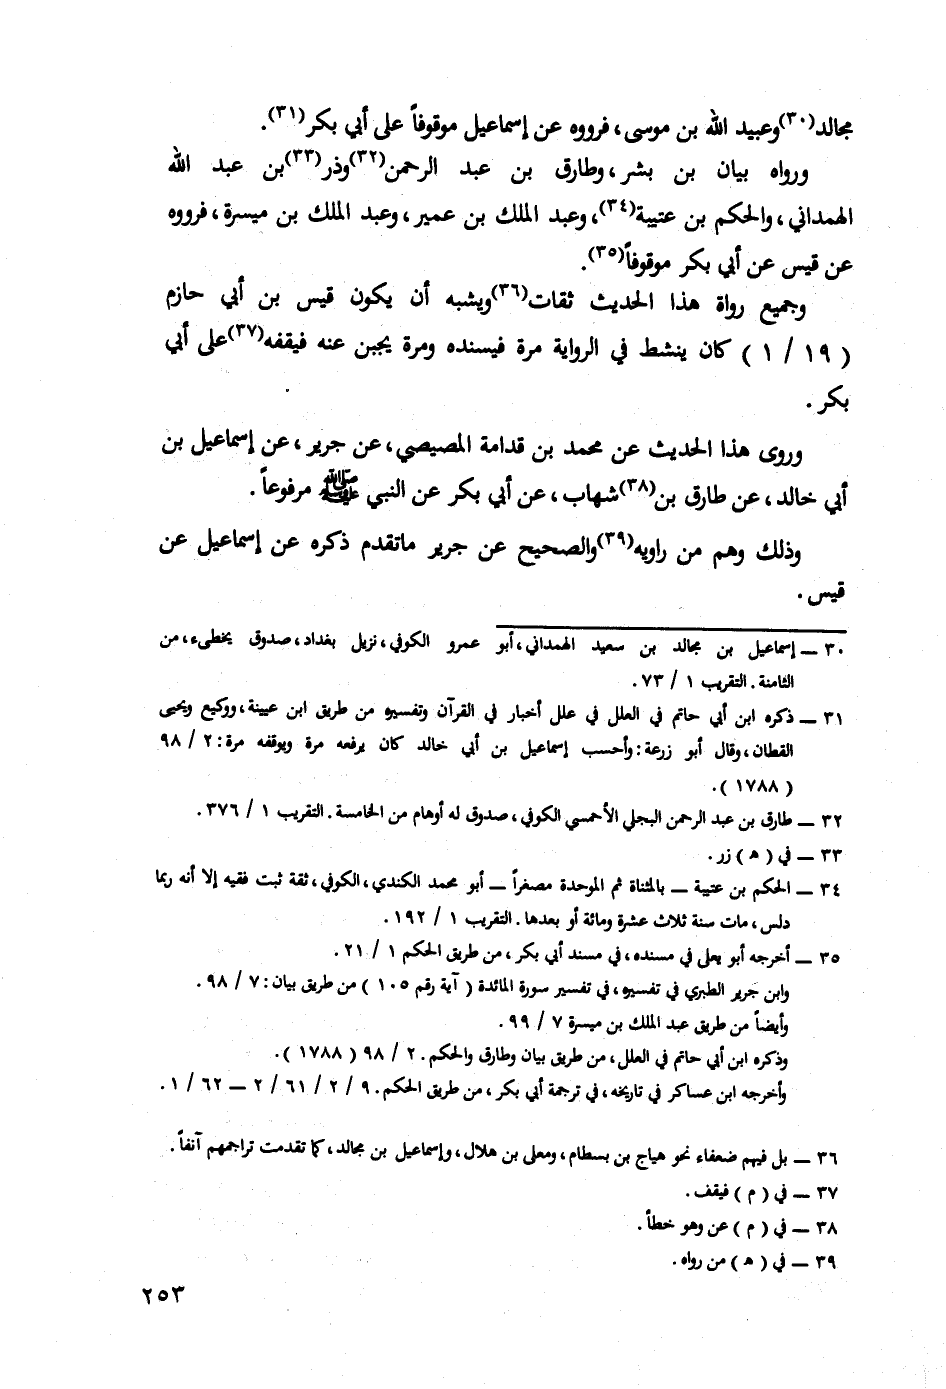 مجالد(٣٠)وعبيد الله بن موسى ، فرووه عن إسماعيل موقوفاً على أبي بكر(٣١).
ورواه بيان بن بشر ، وطارق بن عبد الرحمن(٣٢)وذر(٣٣)بن عبد الله
الهمداني ، والحكم بن عتيبة(٣٤)، وعبد الملك بن عمير ، وعبد الملك بن ميسرة ، فرووه
عن قيس عن أبي بكر موقوفاً(٣٥).
وجميع رواة هذا الحديث ثقات(٣٦)ويشبه أن يكون قيس بن أبي حازم
( ١٩ / ١ ) كان ينشط في الرواية مرة فيسنده ومرة يجبن عنه فيقفه(٣٧)على أبي
بكر .
وروى هذا الحديث عن محمد بن قدامة المصيصي ، عن جرير ، عن إسماعيل بن
أبي خالد ، عن طارق بن(٣٨)شهاب ، عن أبي بكر عن النبي ﷺ مرفوعاً .
وذلك وهم من راويه(٣٩)والصحيح عن جرير ماتقدم ذكره عن إسماعيل عن
قيس .
٣٠ ــ إسماعيل بن مجالد بن سعيد الهمداني ، أبو عمرو الكوفي ، نزيل بغداد ، صدوق يخطىء ، من
الثامنة . التقريب ١ / ٧٣ .
٣١ ــ ذكره ابن أبي حاتم في العلل في علل أخبار في القرآن وتفسيو من طريق ابن عيينة ، ووكيع ويحيى
القطان ، وقال أبو زرعة : وأحسب إسماعيل بن أبي خالد كان يرفعه مرة ويوقفه مرة : ٢ / ٩٨
( ١٧٨٨ ).
٣٢ ــ طارق بن عبد الرحمن البجلي الأحمسي الكوفي ، صدوق له أوهام من الخامسة . التقريب ١ / ٣٧٦ .
٣٣ ــ في ( هـ ) زر .
٣٤ ــ الحكم بن عتيبة ــ بالمثناة ثم الموحدة مصغراً ــ أبو محمد الكندي ، الكوفي ، ثقة ثبت فقيه إلا أنه ربما
دلس ، مات سنة ثلاث عشرة ومائة أو بعدها . التقريب ١ / ١٩٢ .
٣٥ ــ أخرجه أبو يعلى في مسنده ، في مسند أبي بكر ، من طريق الحكم ١ / ٢١ .
وابن جرير الطبري في تفسيو ، في تفسير سورة المائدة ( آية رقم ١٠٥ ) من طريق بيان : ٧ / ٩٨ .
وأيضاً من طريق عبد الملك بن ميسرة ٧ / ٩٩ .
وذكره ابن أبي حاتم في العلل ، من طريق بيان وطارق والحكم . ٢ / ٩٨ ( ١٧٨٨ ).
وأخرجه ابن عساكر في تاريخه ، في ترجمة أبي بكر ، من طريق الحكم . ٩ / ٢ / ٦١ / ٢ ــ ٦٢ / ١ .
٣٦ ــ بل فيهم ضعفاء نحو هياج بن بسطام ، ومعلى بن هلال ، وإسماعيل بن مجالد ، كما تقدمت تراجمهم آنفاً .
٣٧ ــ في ( م ) فيقف .
٣٨ ــ في ( م ) عن وهو خطأ .
٣٩ ــ في ( هـ ) من رواه .
٢٥٣